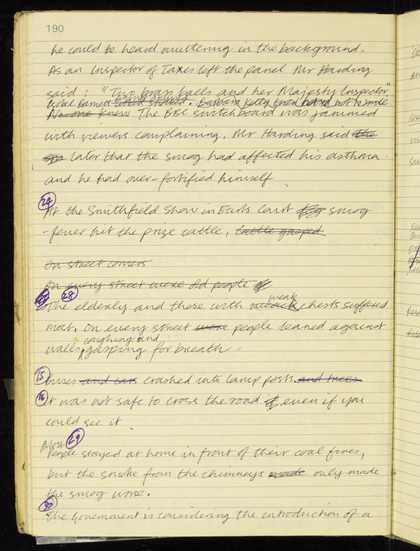 190
he could be heard muttering in the background.
As an Inspector of Taxes left the panel Mr Harding
said: "Two brass balls and her Majesty's Inspector"
No one knew The BBC switchboard was jammed
with viewers complaining. Mr Harding said the
later that the smog had affected his asthma
and he had over-fortified himself.
24
At the Smithfield Show in Earls Court smog
-fever hit the prize cattle, cattle gasped.
On street corners
On every street were old people
28
weak
The elderly and those with chests suffered
most. On every street were people leaned against
coughing and
walls, gasping for breath
15
Buses and cars crashed into lamp posts and trees.
16
It was not safe to cross the road even if you
could see it.
29
Most
People stayed at home in front of their coal fires,
but the smoke from the chimneys made only made
the smog worse.
30
The Government is considering the introduction of a